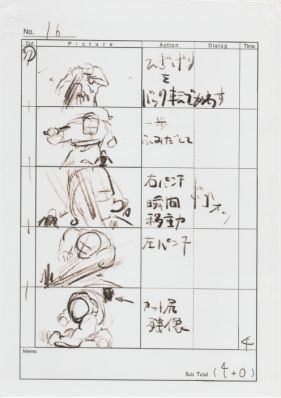 No. 16
Cut
Picture
Action
Dialog
Time
ひざげり
を
バック転でかわす
一歩
ふみだして
右パンチ
瞬間
移動
左パンチ
カット尻
残像
4
Memo
Sub Total (4+0)